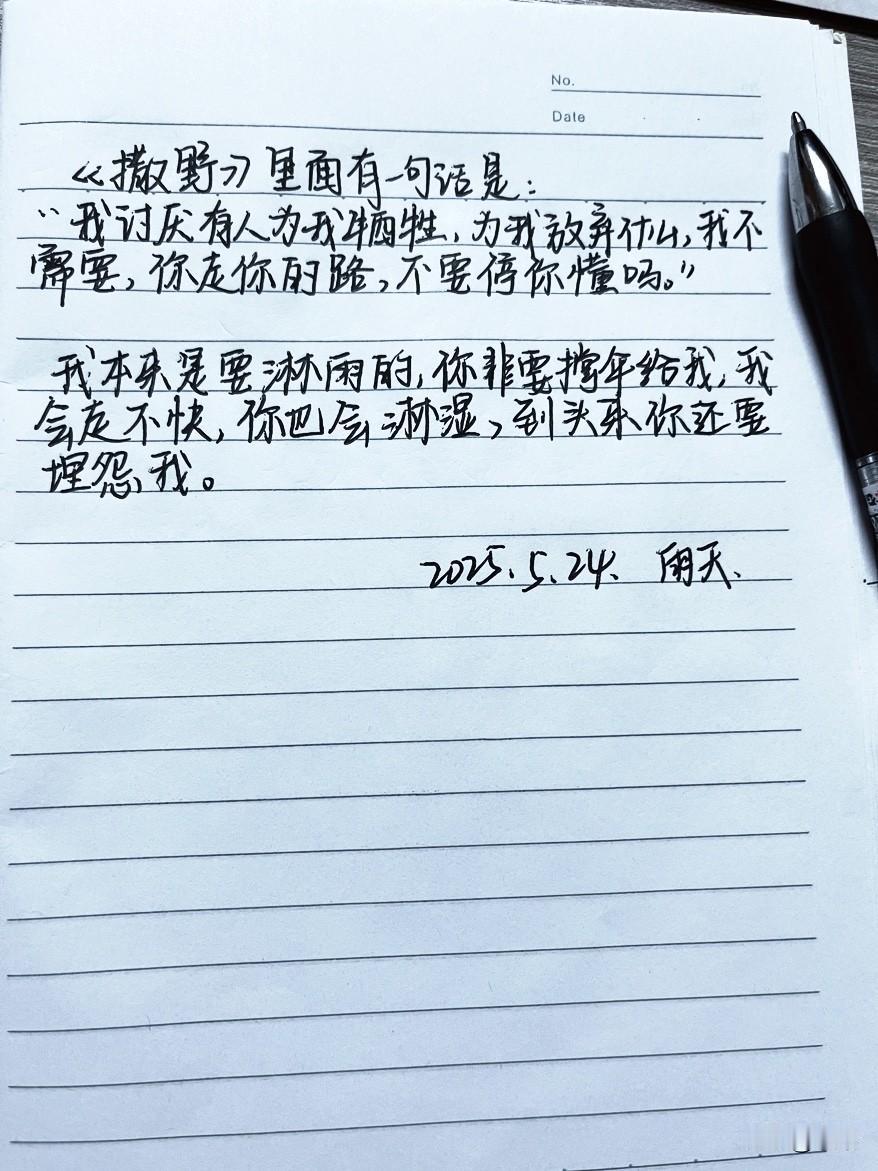 No.
Date
《撒野》里面有一句话是：
“我讨厌有人为我牺牲，为我放弃什么，我不
需要，你走你的路，不要停你懂吗。”
我本来是要淋雨的，你非要撑伞给我，我
会走不快，你也会淋湿，到头来你还要
埋怨我。
2025.5.24. 雨天.